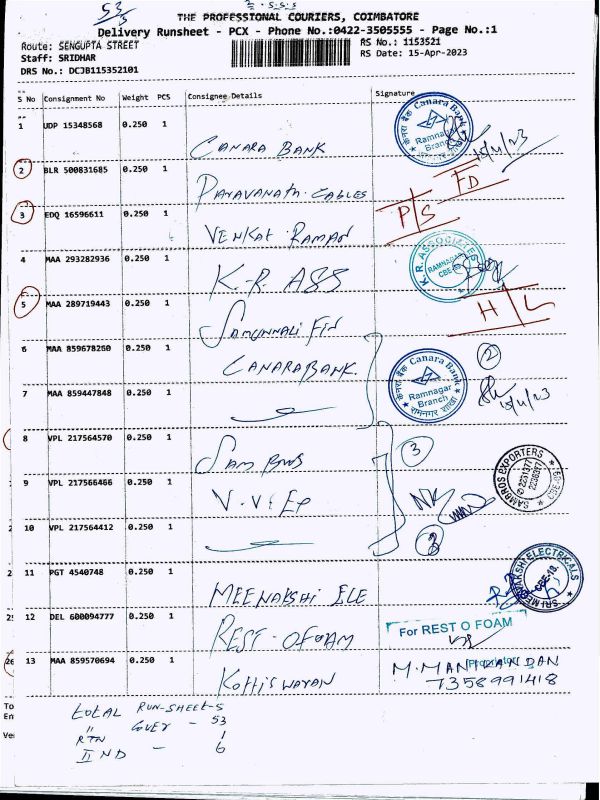 53/5
2-5-5-5
THE PROFESSIONAL COURIERS, COIMBATORE
Delivery Runsheet - PCX - Phone No.:0422-3505555 - Page No.:1
Route: SENGUPTA STREET
RS No.: 1153521
Staff: SRIDHAR
RS Date: 15-Apr-2023
DRS No.: DCJB115352101
S No Consignment No Weight PCS Consignee Details Signature
1 UDP 15348568 0.250 1 CANARA BANK
केनरा बैंक Canara Bank
Ramnagar
Branch
रामनगर शाखा
15/4/23
2 BLR 500831685 0.250 1 PARAVANATA CABLES
FD
3 EDQ 16596611 0.250 1 VENKAT RAMAN
P/S
4 MAA 293282936 0.250 1 K.R. ASS
K. R. ASSOCIATES
RAMNAGAR
CBE
5 MAA 289719443 0.250 1
H L
6 MAA 859678260 0.250 1 CANARA BANK.
2
7 MAA 859447848 0.250 1
केनरा बैंक Canara Bank
Ramnagar
Branch
रामनगर शाखा
15/4/23
8 VPL 217564570 0.250 1 SAM BROS
3
9 VPL 217566466 0.250 1 V.V. EP
SAMBROS EXPORTERS
10 VPL 217564412 0.250 1
11 PGT 4540748 0.250 1 MEENAKSHI ELE
SRI MEENAKSHI ELECTRICALS
CBE-18.
12 DEL 600094777 0.250 1 REST-OFOAM
For REST O FOAM
Proprietor
13 MAA 859570694 0.250 1 Kottiswaran
M. MANIKANDAN
7358991418
TOTAL RUN-SHEET-5
" COVER - 53
RTN 1
II ND - 6